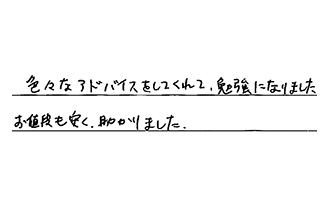 色々なアドバイスをしてくれて、勉強になりました
お値段も安く、助かりました。